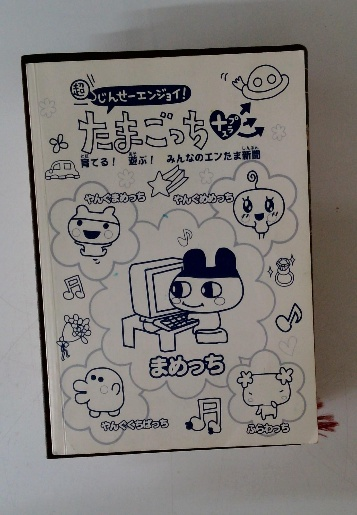 超じんせーエンジョイ!
たまごっち+プラス
育てる! 遊ぶ! みんなのエンたま新聞
やんぐまめっち
やんぐめめっち
まめっち
やんぐくちぱっち
ふらわっち